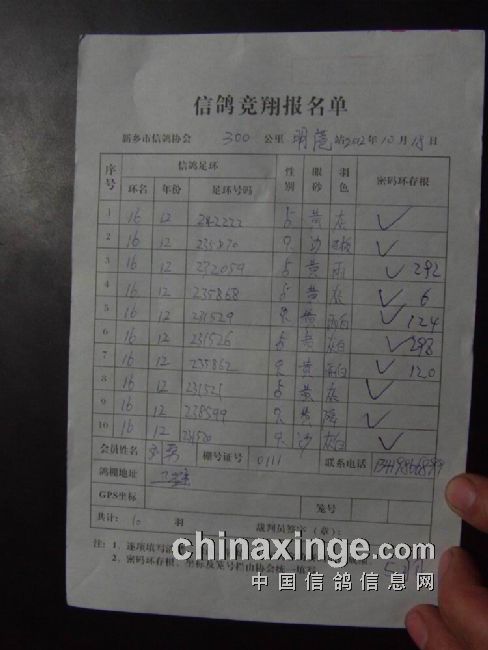 信鸽竞翔报名单
新乡市信鸽协会 300 公里 站2012年10月18日
序号 信鸽足环 性别 眼砂 羽色 密码环存根
环名 年份 足环号码
1 16 12 242222 黄 灰 ✓
2 16 12 235870 沙 ✓
3 16 12 232059 黄 雨 ✓ 292
4 16 12 235868 黄 灰 ✓ 6
5 16 12 231529 黄 雨白 ✓ 124
6 16 12 231526 黄 灰白 ✓ 298
7 16 12 235862 黄 雨白 ✓ 120
8 16 12 231521 黄 灰 ✓
9 16 12 238599 黄 ✓
10 16 12 231520 沙 灰白 ✓
会员姓名 棚号证号 0111 联系电话
鸽棚地址
GPS坐标 笼号
共计: 10 羽 裁判员签字(章):
注: 1、逐项填写
2、密码环存根、坐标及笼号栏由协会统一填写
chinaxinge.com
中国信鸽信息网